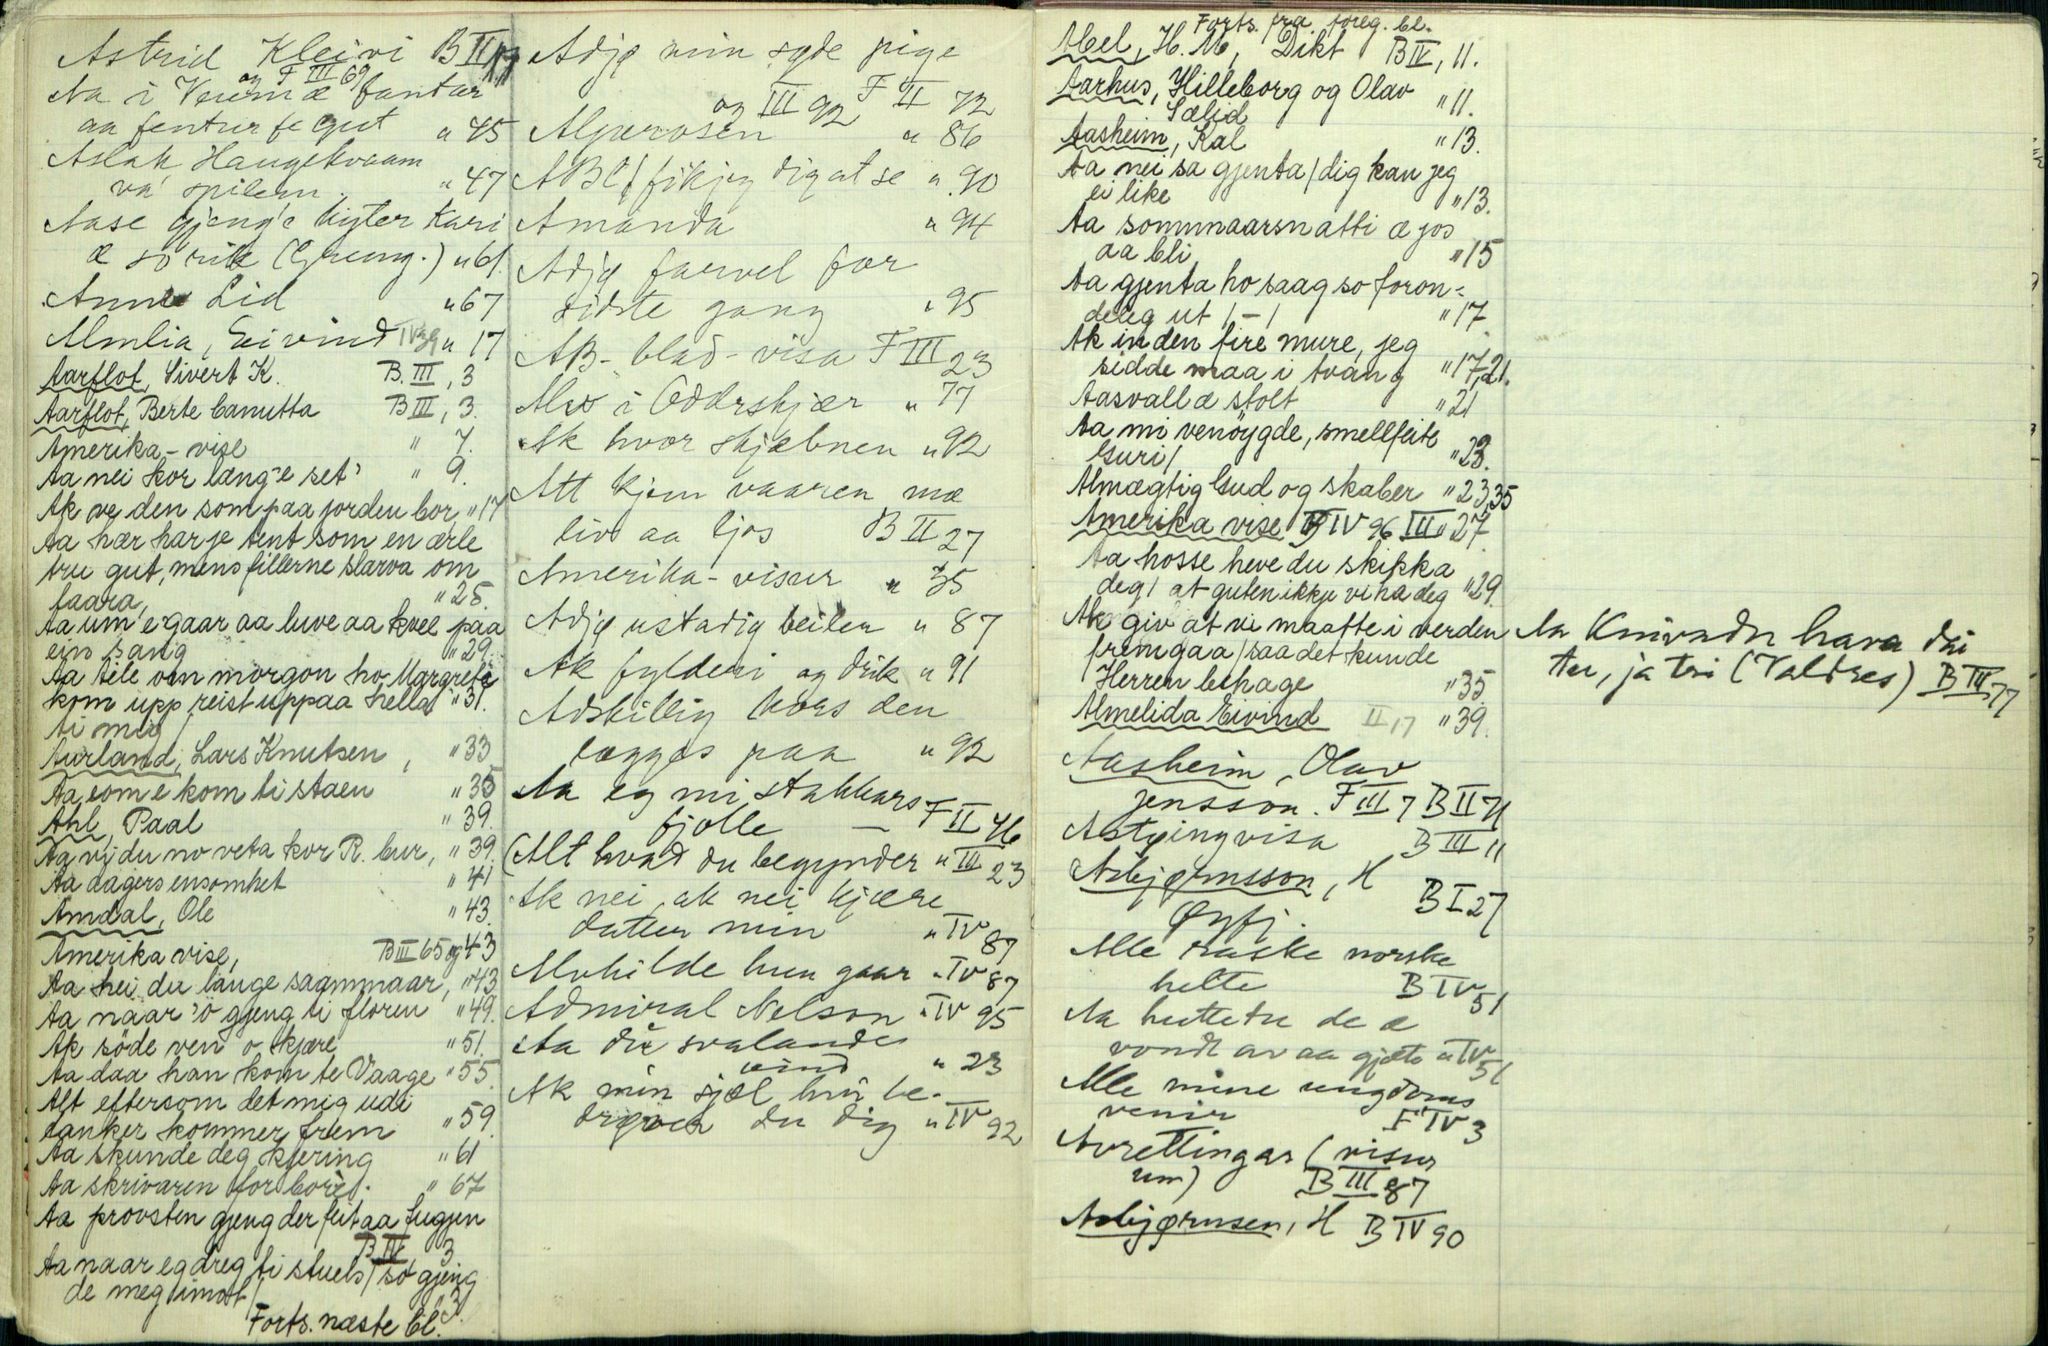 Astrid Kleivi B II
og F III 69
Aa i Veumæ fantar
aa fentur fe gut " 45
Aslak Haugekvaam
va spilem. " 47
Aase gjeng'e hyter Kari
æ so rik (Grung.) " 61
Anne Lid " 67
Almlia, Eivind IV 39 " 17
Aarflot, Sivert K. B. III, 3
Aarflot, Berte Canutta B III, 3.
Amerika-vise " 7.
Aa nei kor læng'e set' " 9.
Ak ve den som paa jorden bor, " 17
Aa hær har je tent som en ærle
tru gut, mens fillerne slarva om
faara, " 25.
Aa um e gaar aa luve aa kvee paa
ein sang " 29.
Aa tile om morgon ho Margrete
kom upp reist uppaa hella " 31.
ti meg /
Aurland, Lars Knutsen, " 33
Aa, som e kom ti staen " 35
Ahl, Paal " 39.
Aa vi du no veta kor R. bur, " 39.
Aa dagers ensomhet " 41
Amdal, Ole " 43.
Amerika vise, B III 65 og 43
Aa hei du lange saammaar, " 43
Aa naar 'o gjeng ti floren " 49.
Ak söde ven o kjære " 51.
Aa daa han kom te Vaage " 55.
Alt eftersom det mig udi
tanker kommer frem " 59.
Aa skunde deg kjering " 61
Aa skrivaren for bore . " 67
Aa provsten gjeng der feit aa lugjen
B IV 3
Aa naar eg dreg ti stuels / so gjeng
de meg imot / " 3.
Forts. næste bl.
Adjø min søde pige
og III 92 F II 72
Alperosen " 86
ABC / fik jeg dig at se " 90
Amanda " 94
Adjø farvel for
sidste gang " 95
AB-blad-visa F III 23
Alv i Oddrskjær " 77
Ak hvor skjæbnen " 92
Att kjem vaaren mæ
liv aa ljos B II 27
Amerika-visur " 35
Adjø ustadig beiler " 87
Ak fylderi og drik " 91
Adskillig kors den
lægges paa " 92
Aa eg mi stakkars
fjolle — F II 46
(Alt hvad du begynder " III 23
Ak nei, ak nei kjære
datter min " IV 87
Alvhilde hun gaar " IV 87
Admiral Nelson " IV 95
Aa du svalande
vind " 23
Ak min sjæl hvi be-
drøver du dig " IV 92
Forts. fra foreg. bl.
Abel, H. M, Dikt B IV, 11.
Aarhus, Hilleborg og Olav " 11.
Sælid
Aasheim, Kal " 13.
Aa nei sa gjenta / dig kan jeg
ei like " 13.
Aa sommaarsnatti æ jos
aa bli " 15
Aa gjenta ho saag so foron=
deleg ut / - / " 17.
Ak inden fire mure, jeg
sidde maa i tvang " 17, 21.
Aasvall æ stolt " 21
Aa mi venöygde, smellfeite
Guri / " 23.
Almægtig Gud og skaber " 23, 35
Amerika vise B IV 96 III " 27.
Aa hosse heve du skikka
deg / at guten ikkje vi ha deg " 29.
Ak giv at vi maatte i verden
fremgaa / saa det kunde
Herren behage " 35.
Almelida Eivind II, 17 " 39.
Aasheim, Olav
Jensson. F III 7 B II 71
Astøingvisa B III 11
Asbjørnsson, H
Øyfj. B I 27
Alle raske norske
helte B IV 51
Aa huttetu de æ
vondt av aa gjæte " IV 51
Alle mine ungdoms
venir F IV 3
Avrettingar (visur
um) B III 87
Asbjørnsen, H B IV 90
Aa Knivadn hava du
tu, ja tri (Valdres) B III 77